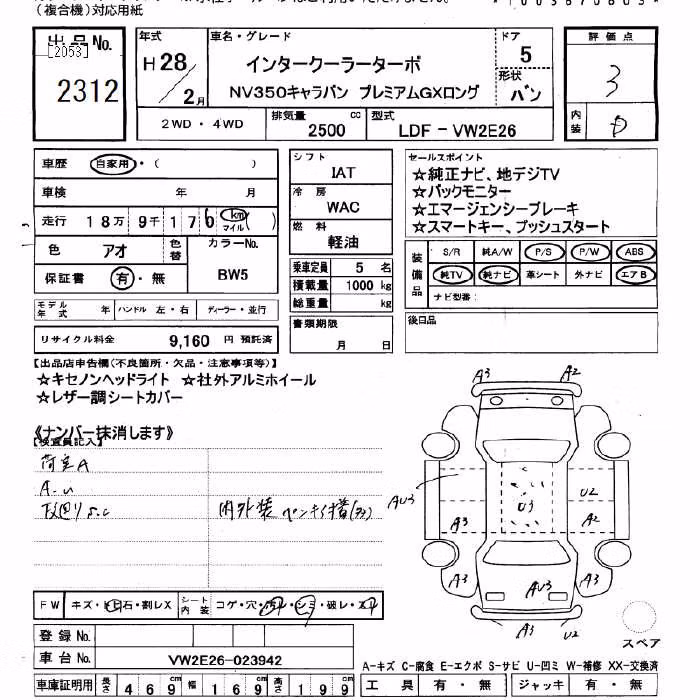 (複合機)対応用紙
出品No. 年式 車名・グレード ドア 評価点
[2053] H28 インタークーラーターボ 5 3
2312 2月 NV350キャラバン プレミアムGXロング 形状 バン
2WD・4WD 排気量 2500 cc 型式 LDF-VW2E26 内装 D
車歴 自家用・( )
車検 年 月
走行 18万9千176 km マイル ( )
色 アオ 色替 カラーNo.
保証書 有・無 BW5
モデル年式 年 ハンドル 左・右 ディーラー・並行
リサイクル料金 9,160 円 預託済
シフト
IAT
冷房
WAC
燃料
軽油
乗車定員 5 名
積載量 1000 kg
総重量 kg
書類期限
月 日
セールスポイント
☆純正ナビ、地デジTV
☆バックモニター
☆エマージェンシーブレーキ
☆スマートキー、プッシュスタート
装備品 S/R 純A/W P/S P/W ABS
純TV 純ナビ 革シート 外ナビ エアB
ナビ型番:
後日品
【出品店申告欄(不良箇所・欠品・注意事項等)】
☆キセノンヘッドライト ☆社外アルミホイール
☆レザー調シートカバー
《ナンバー抹消します》
【検査員記入】
荷室A
A.U
下廻りS.C 内外装 ペンキ付着(多)
A3 A2
AU3 U3 U2
A3 A2
A3 AU3 A3
A3 U2
スペア
FW キズ・トビ石・割レX シート内装 コゲ・穴・汚レ・シミ・破レ・スレ
登録No.
車台No. VW2E26-023942
車庫証明用 長さ 469 cm 幅 169 cm 高さ 199 cm
A-キズ C-腐食 E-エクボ S-サビ U-凹ミ W-補修 XX-交換済
工具 有・無 ジャッキ 有・無